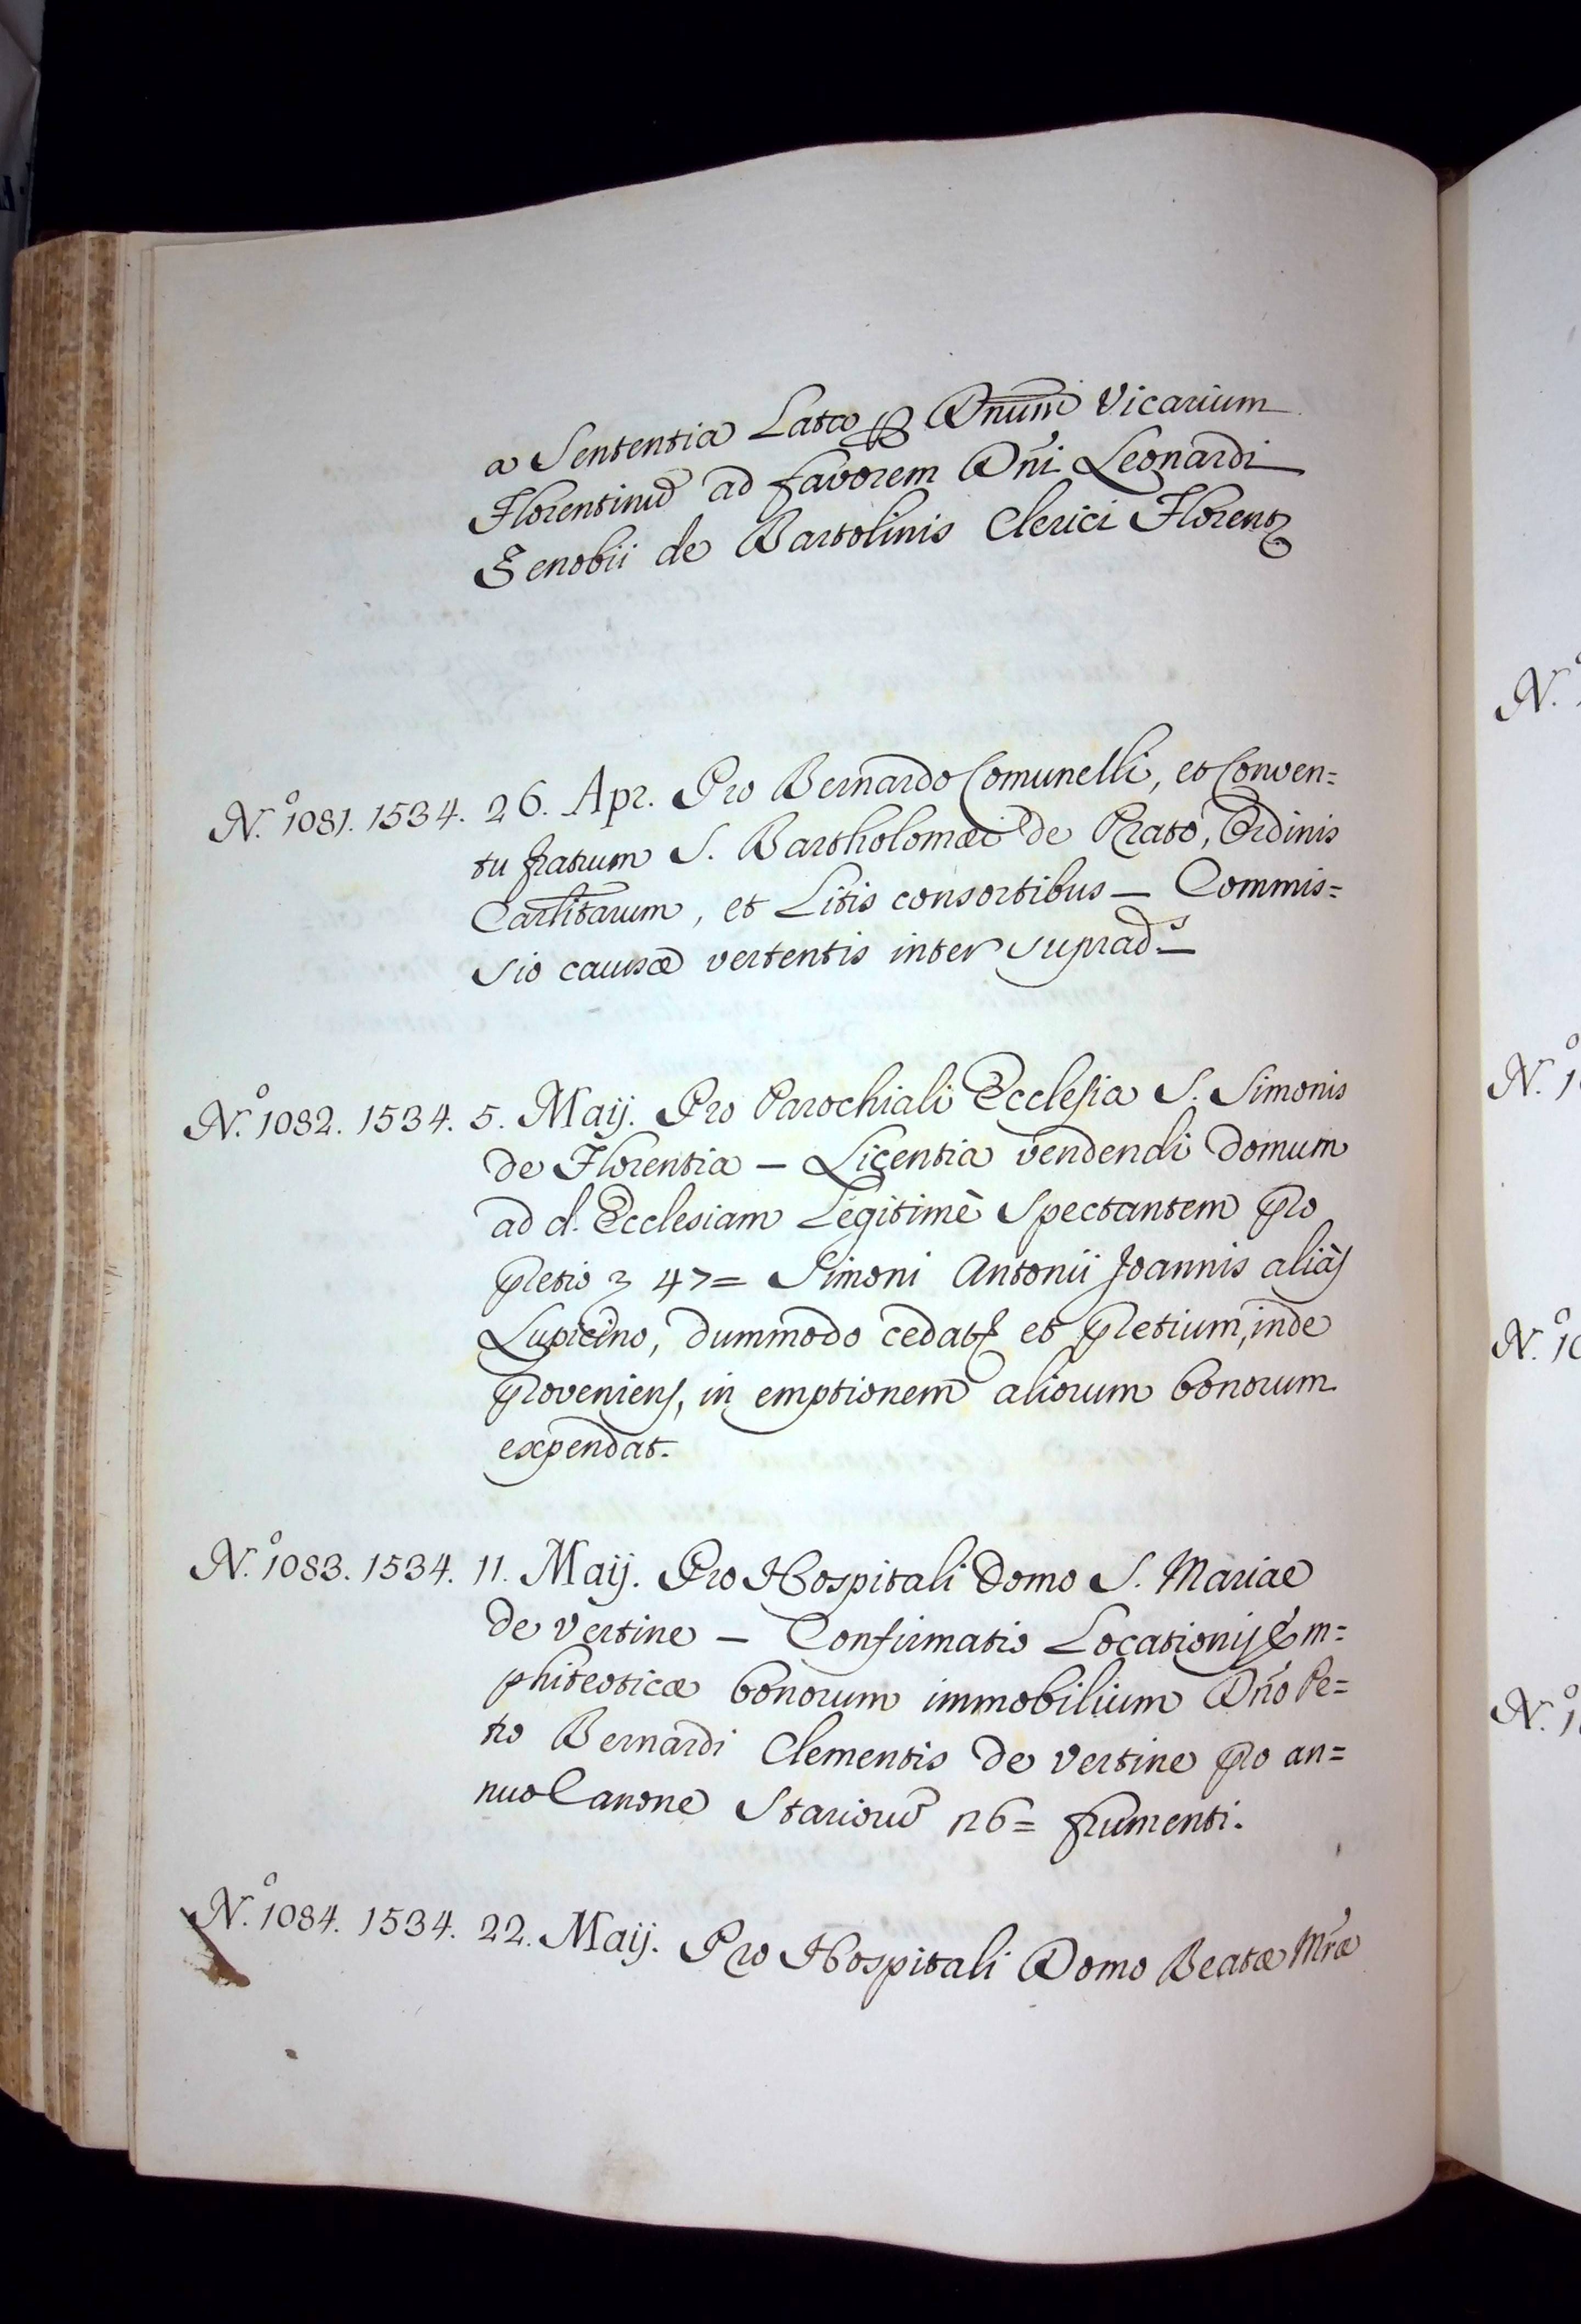 a Sententia Lata ꝑ Dnūm Vicarium
Florentinū ad favorem Dn̄i Leonardi
Zenobii de Bartolinis Clerici Florent
N.º 1081. 1534. 26. Apr. Pro Bernardo Comunelli, et Conven=
tu fratrum S. Bartholomæi de Prato, Ordinis
Carlitarum, et Litis consortibus — Commis=
sio causæ vertentis inter supradˢ —
N.º 1082. 1534. 5. Maij. Pro Parochiali Ecclesia S. Simonis
de Florentia — Licentia vendendi domum
ad d. Ecclesiam Legitimè Spectantem pro
pretio 47= Simoni Antonii Joannis aliàs
Lupicino, dummodo cedat et pretium, inde
proveniens, in emptionem aliorum bonorum
expendat.
N.º 1083. 1534. 11. Maij. Pro Hospitali Domo S. Mariae
de Vertine — Confirmatio Locationis Em=
phiteoticæ bonorum immobilium Dn̄o Pe=
tro Bernardi Clementis de Vertine pro an=
nuo Canone Stariorū n 26= frumenti.
N.º 1084. 1534. 22. Maij. Pro Hospitali Domo Beatæ Mr̄æ
N.
N.º 1
N.º 10
N.º 1